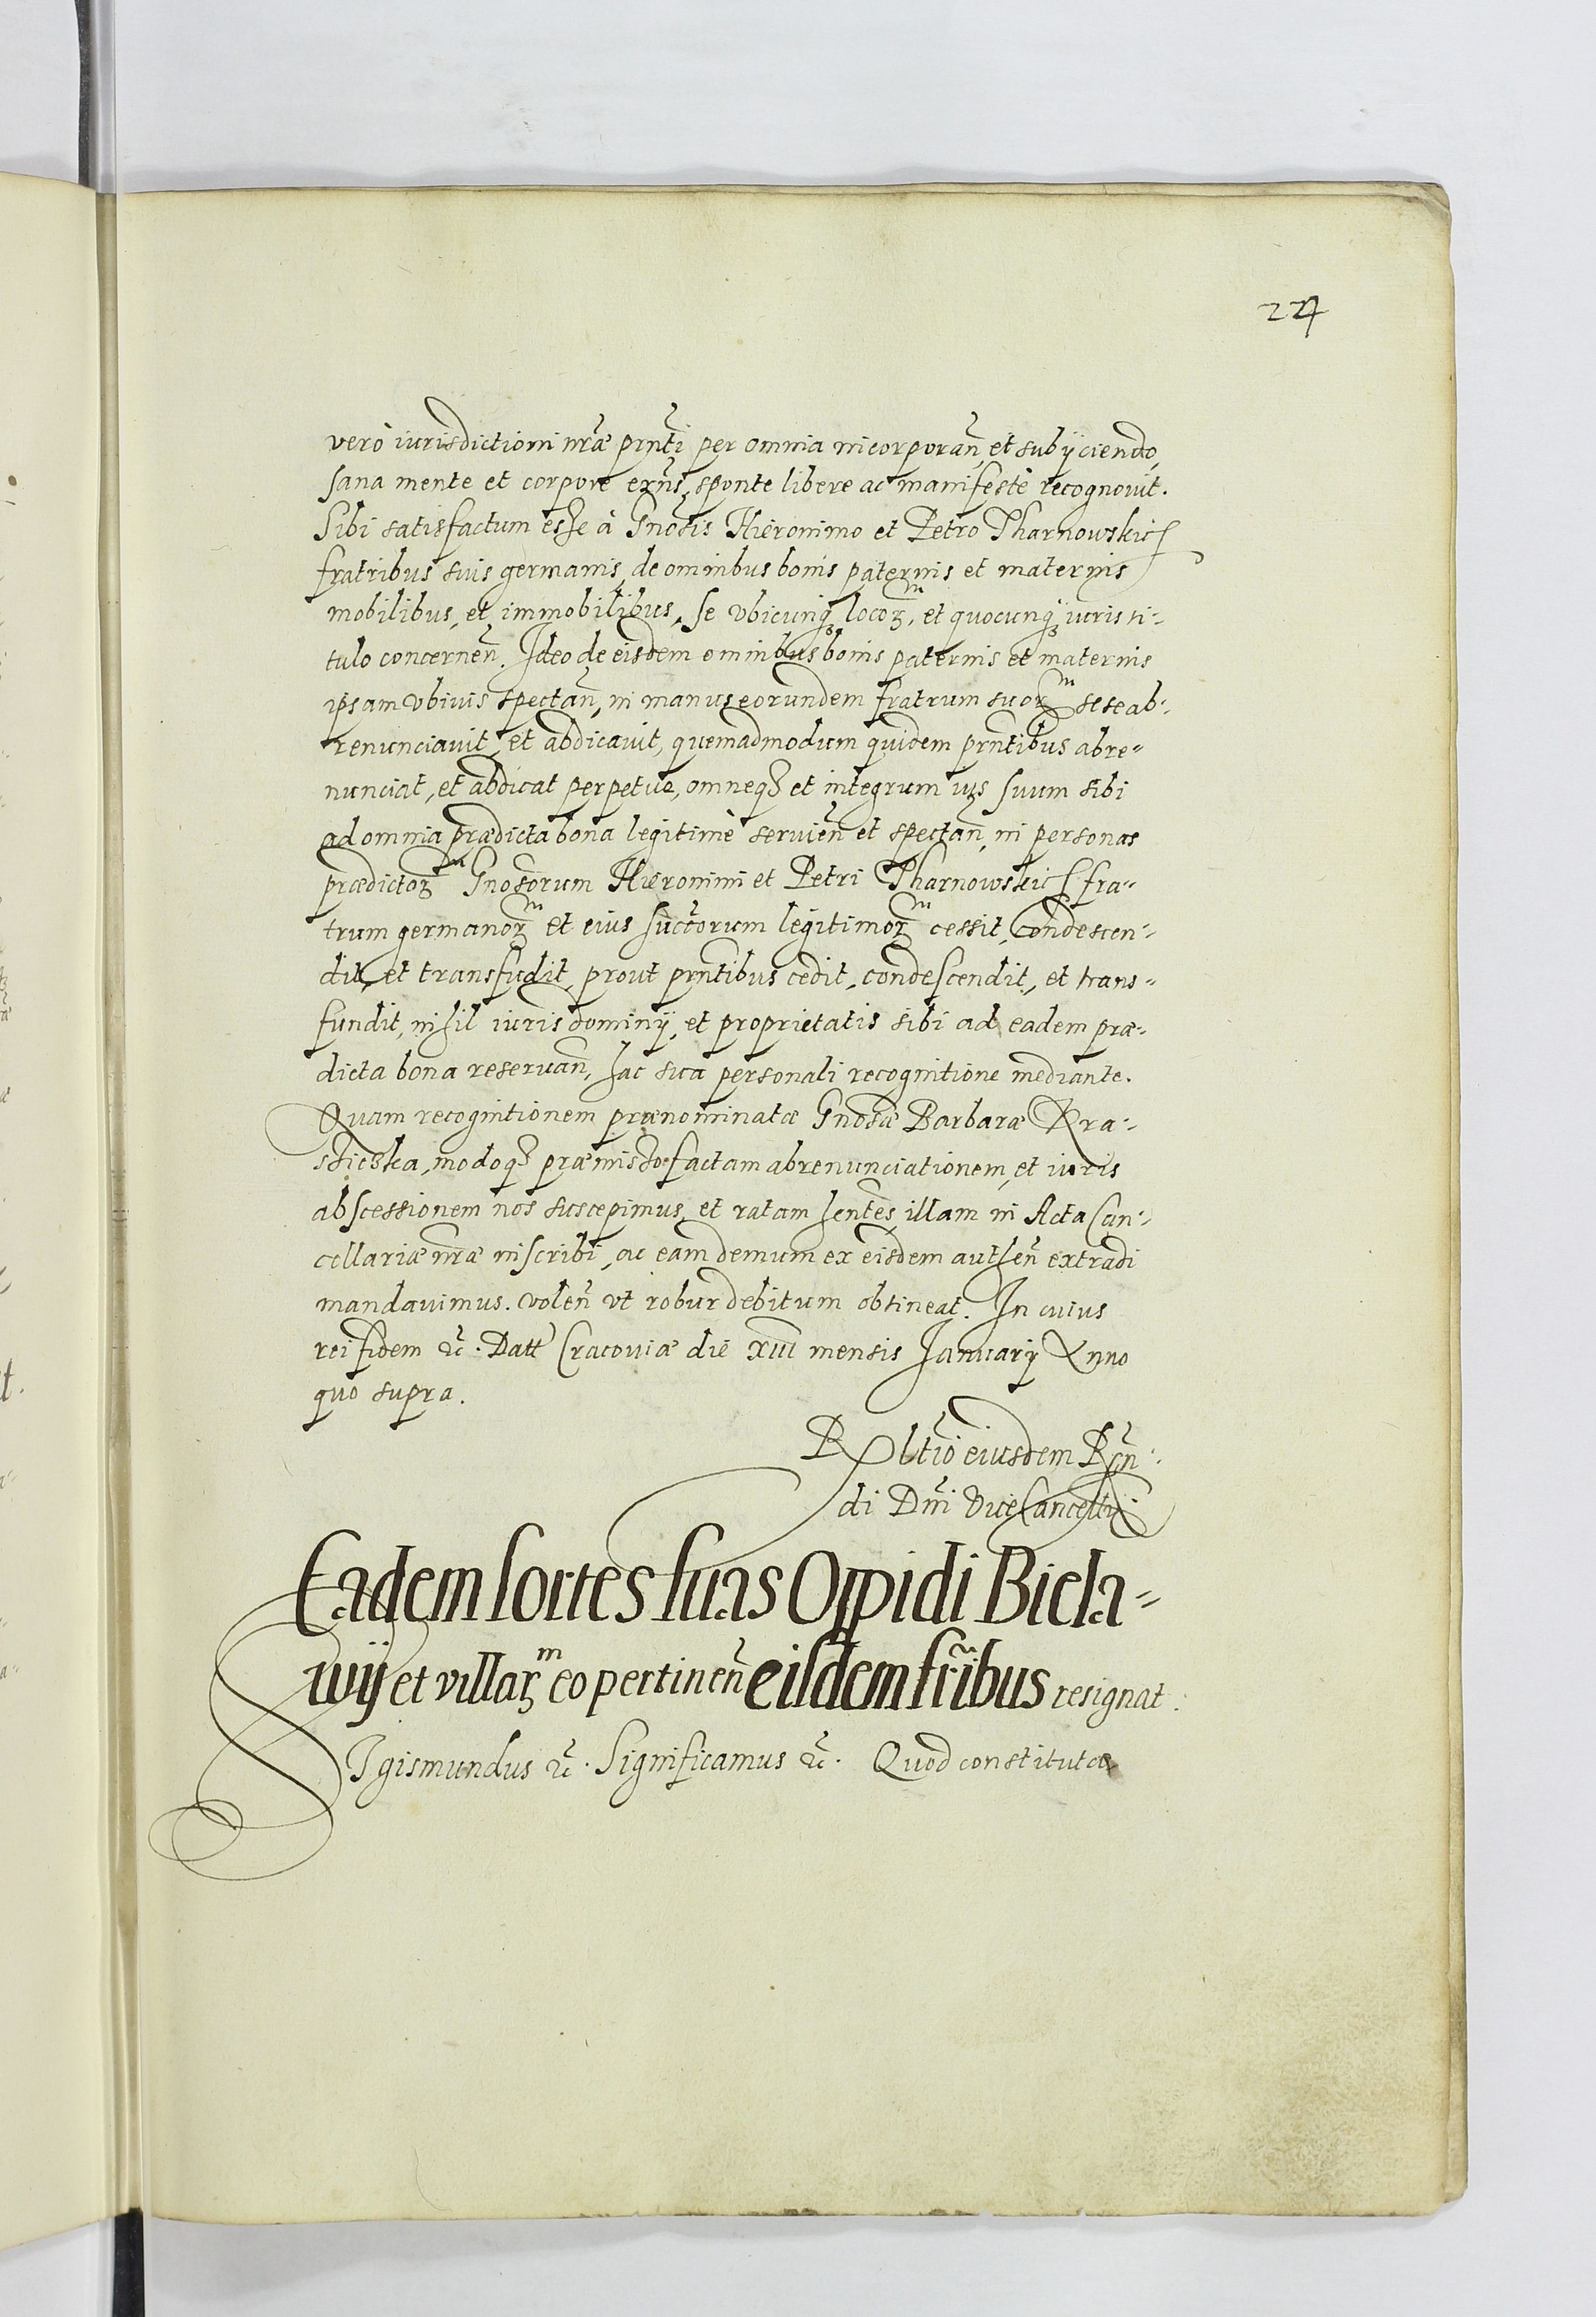 224
verò iurisdictioni nr̃æ prñti per omnia incorporañ, et subijciendo,
sana mente et corpore exñs, sponte libere ac manifestè recognovit.
Sibi satisfactum esse à Gnosis Hieronimo et Petro Tharnowskic
fratribus suis germanis, de omnibus bonis paternis et maternis
mobilibus, et immobilibus, se vbicunqꝫ locoꝝm, et quocunqꝫ iuris ti-
tulo concerneñ. Ideo de eisdem omnibus bonis paternis et maternis
ipsam vbiuis spectañ, in manus eorundem fratrum suoꝝm sese ab-
renunciauit, et abdicauit, quemadmodum quidem prñtibus abre-
nunciat, et abdicat perpetue, omneqꝫ et integrum ius suum sibi
ad omnia prædicta bona legitimè servieñ et spectañ, in personas
prædictoꝝm Gnosorum Hieronimi et Petri Tharnowskic fra-
trum germanoꝝm et eius suctorum legitimoꝝm cessit, condescen-
dit, et transfudit, prout prñtibus cedit, condescendit, et trans-
fundit, nihil iuris dominij, et proprietatis sibi ad eadem præ-
dicta bona reseruañ, hac sua personali recognitione mediante.
Quam recognitionem prænominatæ Gnosæ Barbaræ Kra-
sdicska, modoqꝫ præmisso factam abrenunciationem, et iuris
abscessionem nos suscepimus, et ratam hentes, illam in Acta Can-
cellariæ nr̃æ inscribi, ac eam demum ex eisdem autheñ extradi
mandauimus. voleñ vt robur debitum obtineat. In cuius
rei fidem &c̃. Datt Cracouiæ die XIII mensis Januarij Anno
quo supra.
Rltio eiusdem Rñ-
di Dñi ViceCancellrij
Eadem sortes suas Oppidi Biela-
wij et villaꝝm eo pertineñ eisdem fr̃ibus resignat.
SIgismundus &c̃. Significamus &c̃. Quod constituta